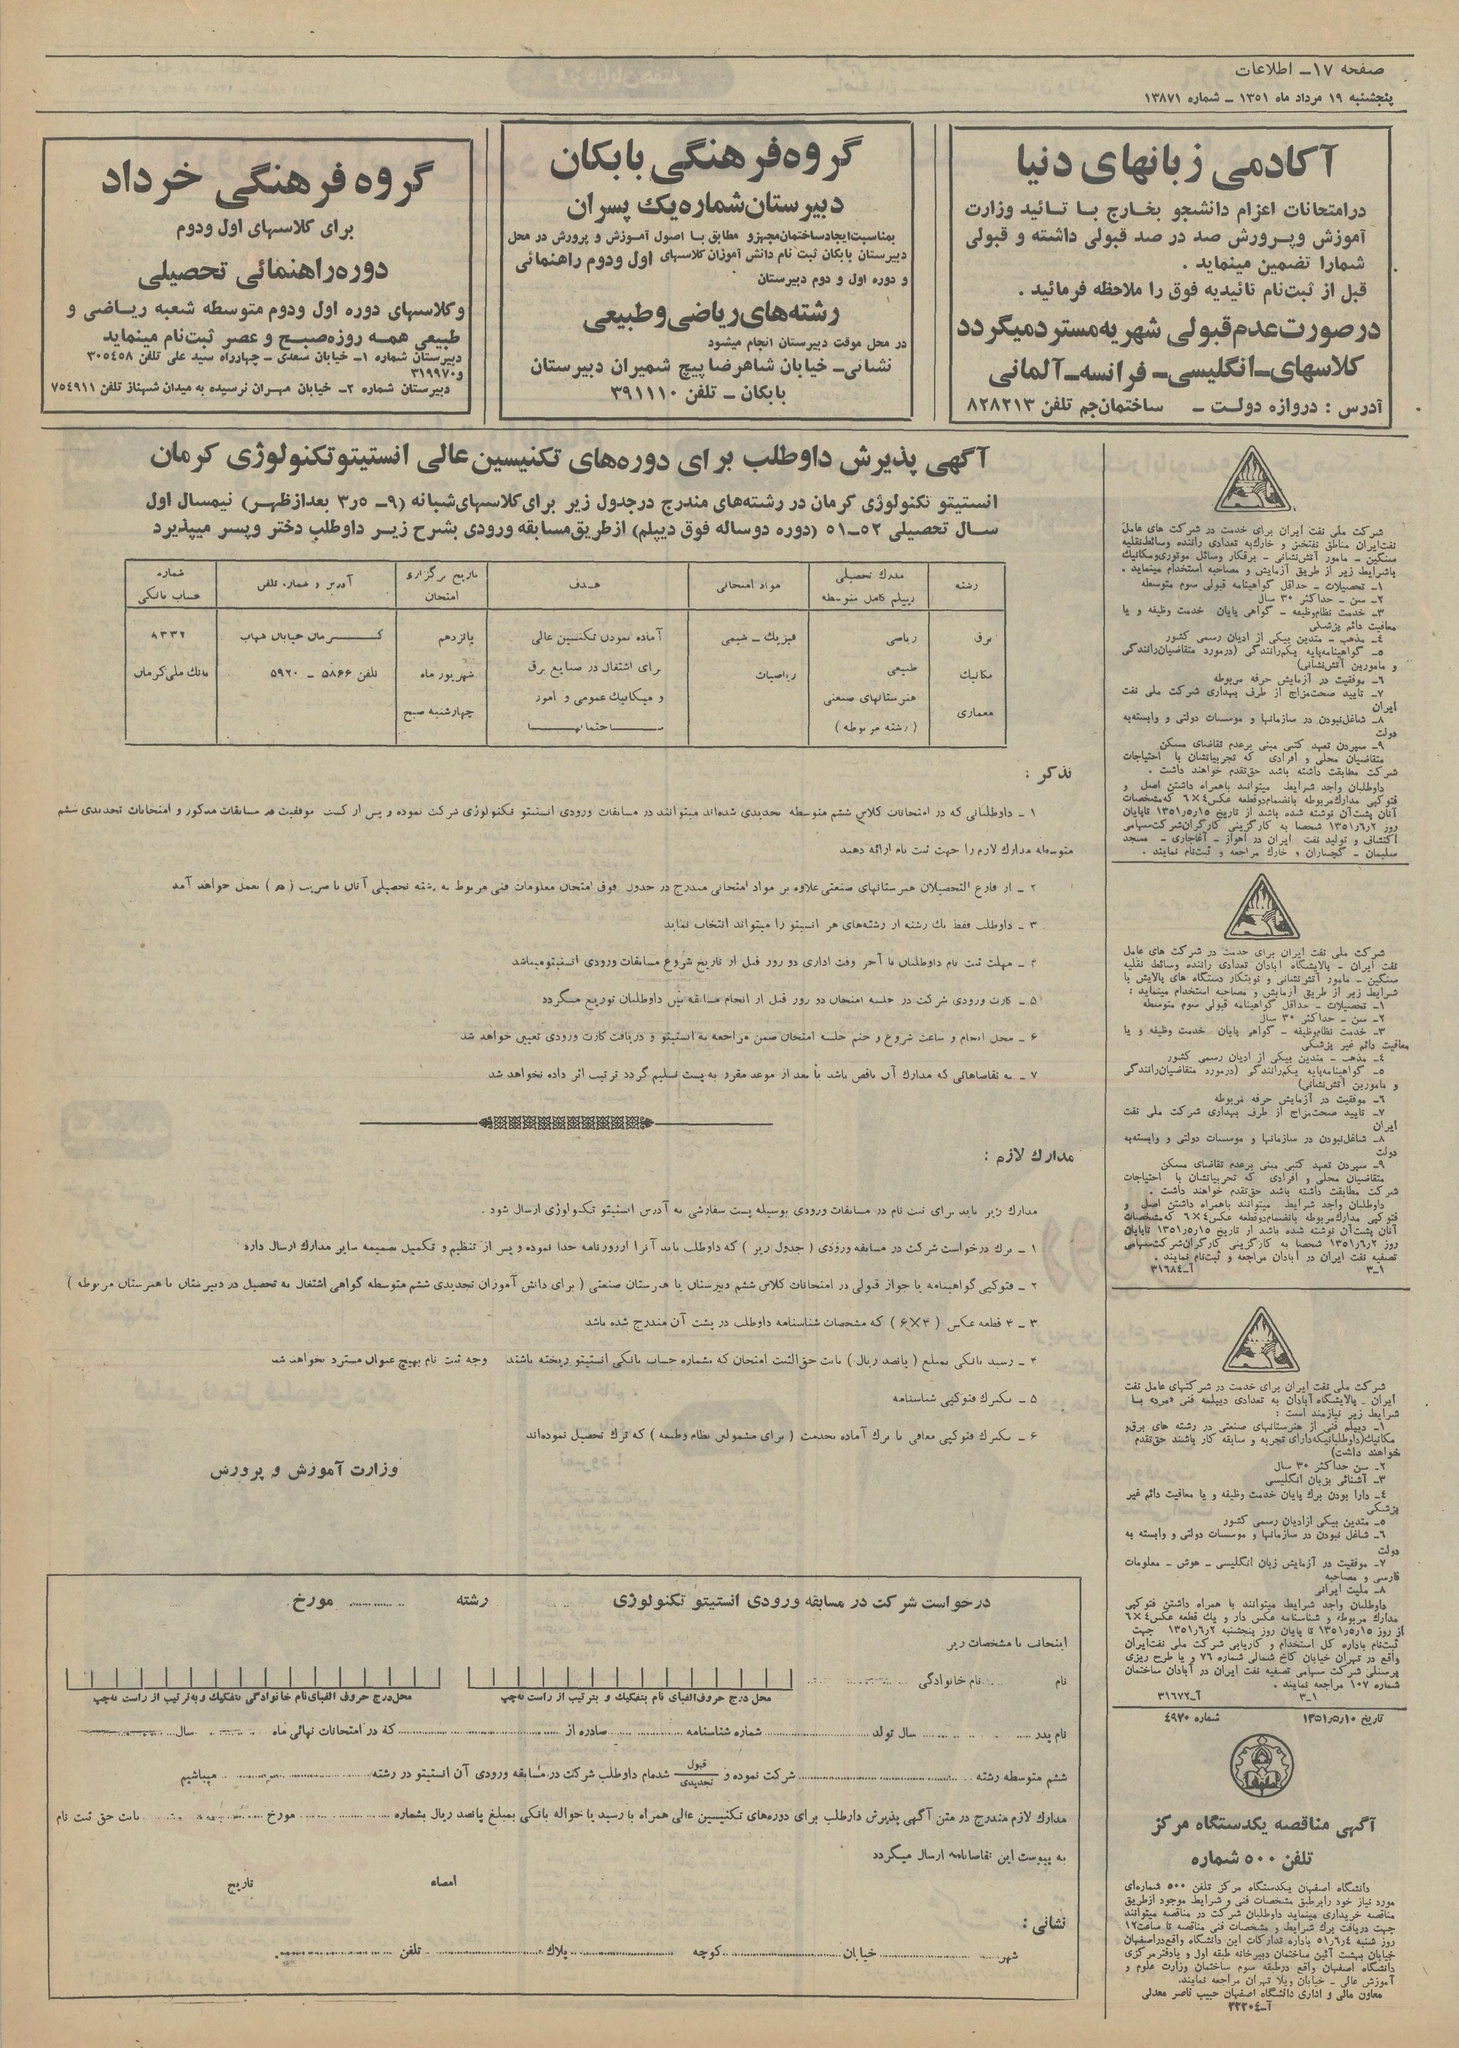 صفحه ۱۷ــ اطلاعات
پنجشنبه ۱۹ مرداد ماه ۱۳۵۱ ــ شماره ۱۳۸۷۱
آکادمی زبانهای دنیا
درامتحانات اعزام دانشجو بخارج با تائید وزارت
آموزش وپرورش صد در صد قبولی داشته و قبولی
شمارا تضمین مینماید .
قبل از ثبت‌نام تائیدیه فوق را ملاحظه فرمائید .
درصورت عدم قبولی شهریه مسترد میگردد
کلاسهای ــ انگلیسی ــ فرانسه ــ آلمانی
آدرس : دروازه دولت ــ ساختمان جم تلفن ۸۲۸۲۱۳
گروه فرهنگی بابکان
دبیرستان شماره یک پسران
بمناسبت ایجاد ساختمان مجهزو مطابق با اصول آموزش و پرورش در محل
دبیرستان بابکان ثبت نام دانش آموزان کلاسهای اول ودوم راهنمائی
و دوره اول و دوم دبیرستان
رشته‌های ریاضی و طبیعی
در محل موقت دبیرستان انجام میشود
نشانی ــ خیابان شاهرضا پیچ شمیران دبیرستان
بابکان ــ تلفن ۳۹۱۱۱۰
گروه فرهنگی خرداد
برای کلاسهای اول ودوم
دوره راهنمائی تحصیلی
وکلاسهای دوره اول ودوم متوسطه شعبه ریاضی و
طبیعی همه روزه صبح و عصر ثبت‌نام مینماید
دبیرستان شماره ۱ــ خیابان سعدی ــ چهارراه سید علی تلفن ۳۰۵۴۵۸
و۳۱۹۹۷۰
دبیرستان شماره ۲ــ خیابان مهران نرسیده به میدان شهناز تلفن ۷۵۴۹۱۱
آگهی پذیرش داوطلب برای دوره‌های تکنیسین عالی انستیتو تکنولوژی کرمان
انستیتو تکنولوژی کرمان در رشته‌های مندرج درجدول زیر برای کلاسهای شبانه (۹ــ ۳٫۵ بعدازظهر) نیمسال اول
سال تحصیلی ۵۲ــ۵۱ (دوره دوساله فوق دیپلم) ازطریق مسابقه ورودی بشرح زیر داوطلب دختر وپسر میپذیرد
رشته | مدرك تحصیلی دیپلم کامل متوسطه | مواد امتحانی | هدف | تاریخ برگزاری امتحان | آدرس و شماره تلفن | شماره حساب بانکی
برق | ریاضی | فیزیك ــ شیمی | آماده نمودن تکنسین عالی | پانزدهم | کرمان خیابان شهاب | ۸۳۳۲
مکانیك | طبیعی | ریاضیات | برای اشتغال در صنایع برق | شهریور ماه | تلفن ۵۸۶۶ ــ ۵۹۲۰ | بانك ملی کرمان
معماری | هنرستانهای صنعتی | و میکانیك عمومی و امور | چهارشنبه صبح
( رشته مربوطه ) | ساختمانها
تذکر :
۱ ــ داوطلبانی که در امتحانات کلاس ششم متوسطه تجدیدی شده‌اند میتوانند در مسابقات ورودی انستیتو تکنولوژی شرکت نموده و پس از کسب موفقیت در مسابقات مذکور و امتحانات تجدیدی ششم
متوسطه مدارك لازم را جهت ثبت نام ارائه دهند
۲ ــ از فارغ التحصیلان هنرستانهای صنعتی علاوه بر مواد امتحانی مندرج در جدول فوق امتحان معلومات فنی مربوط به رشته تحصیلی آنان با ضریب بعمل خواهد آمد
۳ ــ داوطلب فقط یك رشته از رشته‌های هر انستیتو را میتواند انتخاب نماید
۴ ــ مهلت ثبت نام داوطلبان تا آخر وقت اداری دو روز قبل از تاریخ شروع مسابقات ورودی انستیتو میباشد
۵ ــ کارت ورودی شرکت در جلسه امتحان دو روز قبل از انجام مسابقه بین داوطلبان توزیع میگردد
۶ ــ محل انجام و ساعت شروع و ختم جلسه امتحان ضمن مراجعه به انستیتو و دریافت کارت ورودی تعیین خواهد شد
۷ ــ به تقاضاهائی که مدارك آن ناقص باشد یا بعد از موعد مقرر به پست تسلیم گردد ترتیب اثر داده نخواهد شد
مدارك لازم :
مدارك زیر باید برای ثبت نام در مسابقات ورودی بوسیله پست سفارشی به آدرس انستیتو تکنولوژی ارسال شود .
۱ ــ برك درخواست شرکت در مسابقه ورودی ( جدول زیر ) که داوطلب باید آنرا ازروزنامه جدا نموده و پس از تنظیم و تکمیل بضمیمه سایر مدارك ارسال دارد
۲ ــ فتوکپی گواهینامه یا جواز قبولی در امتحانات کلاس ششم دبیرستان یا هنرستان صنعتی ( برای دانش آموزان تجدیدی ششم متوسطه گواهی اشتغال به تحصیل در دبیرستان یا هنرستان مربوطه )
۳ ــ ۴ قطعه عکس ( ۴×۶ ) که مشخصات شناسنامه داوطلب در پشت آن مندرج شده باشد
۴ ــ رسید بانکی بمبلغ ( پانصد ریال ) بابت حق‌الثبت امتحان که بشماره حساب بانکی انستیتو ریخته باشند وجه ثبت نام بهیچ عنوان مسترد نخواهد شد
۵ ــ یکبرك فتوکپی شناسنامه
۶ ــ یکبرك فتوکپی معافی یا برك آماده بخدمت ( برای مشمولین نظام وظیفه ) که ترك تحصیل نموده‌اند
وزارت آموزش و پرورش
درخواست شرکت در مسابقه ورودی انستیتو تکنولوژی رشته مورخ
اینجانب با مشخصات زیر
نام نام خانوادگی
محل درج حروف الفبای نام بتفکیك و بترتیب از راست به‌چپ
محل درج حروف الفبای نام خانوادگی بتفکیك و به‌ترتیب از راست به‌چپ
نام پدر سال تولد شماره شناسنامه صادره از که در امتحانات نهائی ماه سال
ششم متوسطه رشته شرکت نموده و قبول تجدیدی شده‌ام داوطلب شرکت در مسابقه ورودی آن انستیتو در رشته میباشیم
مدارك لازم مندرج در متن آگهی پذیرش داوطلب برای دوره‌های تکنیسین عالی همراه با رسید یا حواله بانکی بمبلغ پانصد ریال بشماره مورخ بابت حق ثبت نام
به پیوست این تقاضانامه ارسال میگردد
امضاء تاریخ
نشانی :
شهر خیابان کوچه پلاك تلفن
شرکت ملی نفت ایران برای خدمت در شرکت های عامل
نفت‌ایران مناطق نفتخیز و خارك به تعدادی راننده وسائط نقلیه
سنگین ــ مامور آتش‌نشانی ــ برقکار وسائل موتوری ومکانیك
باشرایط زیر از طریق آزمایش و مصاحبه استخدام مینماید .
۱ــ تحصیلات ــ حداقل گواهینامه قبولی سوم متوسطه
۲ــ سن ــ حداکثر ۳۰ سال
۳ــ خدمت نظام‌وظیفه ــ گواهی پایان خدمت وظیفه و یا
معافیت دائم پزشکی
۴ــ مذهب ــ متدین بیکی از ادیان رسمی کشور
۵ــ گواهینامه‌پایه یکم‌رانندگی (درمورد متقاضیان‌رانندگی
و مامورین آتش‌نشانی)
۶ــ موفقیت در آزمایش حرفه مربوطه
۷ــ تایید صحت‌مزاج از طرف بهداری شرکت ملی نفت
ایران
۸ــ شاغل‌نبودن در سازمانها و موسسات دولتی و وابسته‌به
دولت
۹ــ سپردن تعهد کتبی مبنی برعدم تقاضای مسکن
متقاضیان محلی و افرادی که تجربیاتشان با احتیاجات
شرکت مطابقت داشته باشد حق‌تقدم خواهند داشت .
داوطلبان واجد شرایط میتوانند باهمراه داشتن اصل و
فتوکپی مدارك‌مربوطه بانضمام‌دوقطعه عکس۴×۶ که‌مشخصات
آنان پشت‌آن نوشته شده باشد از تاریخ ۱۳۵۱٫۵٫۱۵ تاپایان
روز ۱۳۵۱٫۶٫۲ شخصا به کارگزینی کارگران‌شرکت‌سهامی
اکتشاف و تولید نفت ایران در اهواز ــ آغاجاری ــ مسجد
سلیمان ــ گچساران و خارك مراجعه و ثبت‌نام نمایند .
شرکت ملی نفت ایران برای خدمت در شرکت های عامل
نفت ایران ــ پالایشگاه آبادان تعدادی راننده وسائط نقلیه
سنگین ــ مامور آتش‌نشانی و نوبتکار دستگاه های پالایش با
شرایط زیر از طریق آزمایش و مصاحبه استخدام مینماید :
۱ــ تحصیلات ــ حداقل گواهینامه قبولی سوم متوسطه
۲ــ سن ــ حداکثر ۳۰ سال
۳ــ خدمت نظام‌وظیفه ــ گواهی پایان خدمت وظیفه و یا
معافیت دائم غیر پزشکی
۴ــ مذهب ــ متدین بیکی از ادیان رسمی کشور
۵ــ گواهینامه‌پایه یکم‌رانندگی (درمورد متقاضیان‌رانندگی
و مامورین آتش‌نشانی)
۶ــ موفقیت در آزمایش حرفه مربوطه
۷ــ تایید صحت‌مزاج از طرف بهداری شرکت ملی نفت
ایران
۸ــ شاغل‌نبودن در سازمانها و موسسات دولتی و وابسته‌به
دولت
۹ــ سپردن تعهد کتبی مبنی برعدم تقاضای مسکن
متقاضیان محلی و افرادی که تجربیاتشان با احتیاجات
شرکت مطابقت داشته باشد حق‌تقدم خواهند داشت .
داوطلبان واجد شرایط میتوانند باهمراه داشتن اصل و
فتوکپی مدارك‌مربوطه بانضمام‌دوقطعه عکس۴×۶ که‌مشخصات
آنان پشت‌آن نوشته شده باشد از تاریخ ۱۳۵۱٫۵٫۱۵ تاپایان
روز ۱۳۵۱٫۶٫۲ شخصا به کارگزینی کارگران‌شرکت‌سهامی
تصفیه نفت ایران در آبادان مراجعه و ثبت‌نام نمایند .
۱ــ۳ آــ۳۱۶۸۴
شرکت ملی نفت ایران برای خدمت در شرکتهای عامل نفت
ایران ــ پالایشگاه آبادان به تعدادی دیپلمه فنی «مرد» با
شرایط زیر نیازمند است :
۱ــ دیپلم فنی از هنرستانهای صنعتی در رشته های برق‌و
مکانیك(داوطلبانیکه‌دارای تجربه و سابقه کار باشند حق‌تقدم
خواهند داشت)
۲ــ سن حداکثر ۳۰ سال
۳ــ آشنائی بزبان انگلیسی
۴ــ دارا بودن برك پایان خدمت وظیفه و یا معافیت دائم غیر
پزشکی
۵ــ متدین بیکی ازادیان رسمی کشور
۶ــ شاغل نبودن در سازمانها و موسسات دولتی و وابسته به
دولت
۷ــ موفقیت در آزمایش زبان انگلیسی ــ هوش ــ معلومات
فارسی و مصاحبه
۸ــ ملیت ایرانی
داوطلبان واجد شرایط میتوانند با همراه داشتن فتوکپی
مدارك مربوطه و شناسنامه عکس دار و یك قطعه عکس۴×۶
از روز ۱۳۵۱٫۵٫۱۵ تا پایان روز پنجشنبه ۱۳۵۱٫۶٫۲ جهت
ثبت‌نام باداره کل استخدام و کاریابی شرکت ملی نفت‌ایران
واقع در تهران خیابان کاخ شمالی شماره ۷۶ و یا طرح ریزی
پرسنلی شرکت سهامی تصفیه نفت ایران در آبادان ساختمان
شماره ۱۰۷ مراجعه نمایند .
۱ــ۳ آــ۳۱۶۷۲
تاریخ ۱۳۵۱٫۵٫۱۰ شماره ۴۹۷۰
آگهی مناقصه یکدستگاه مرکز
تلفن ۵۰۰ شماره
دانشگاه اصفهان یکدستگاه مرکز تلفن ۵۰۰ شماره‌ای
مورد نیاز خود رابرطبق مشخصات فنی و شرایط موجود ازطریق
مناقصه خریداری مینماید داوطلبان شرکت در مناقصه میتوانند
جهت دریافت برك شرایط و مشخصات فنی مناقصه تا ساعت۱۲
روز شنبه ۵۱٫۶٫۴ باداره تدارکات این دانشگاه واقع‌دراصفهان
خیابان بهشت آئین ساختمان دبیرخانه طبقه اول و یادفترمرکزی
دانشگاه اصفهان واقع درطبقه سوم ساختمان وزارت علوم و
آموزش عالی ــ خیابان ویلا تهران مراجعه نمایند.
معاون مالی و اداری دانشگاه اصفهان حبیب ناصر معدلی
آــ۳۲۲۰۴